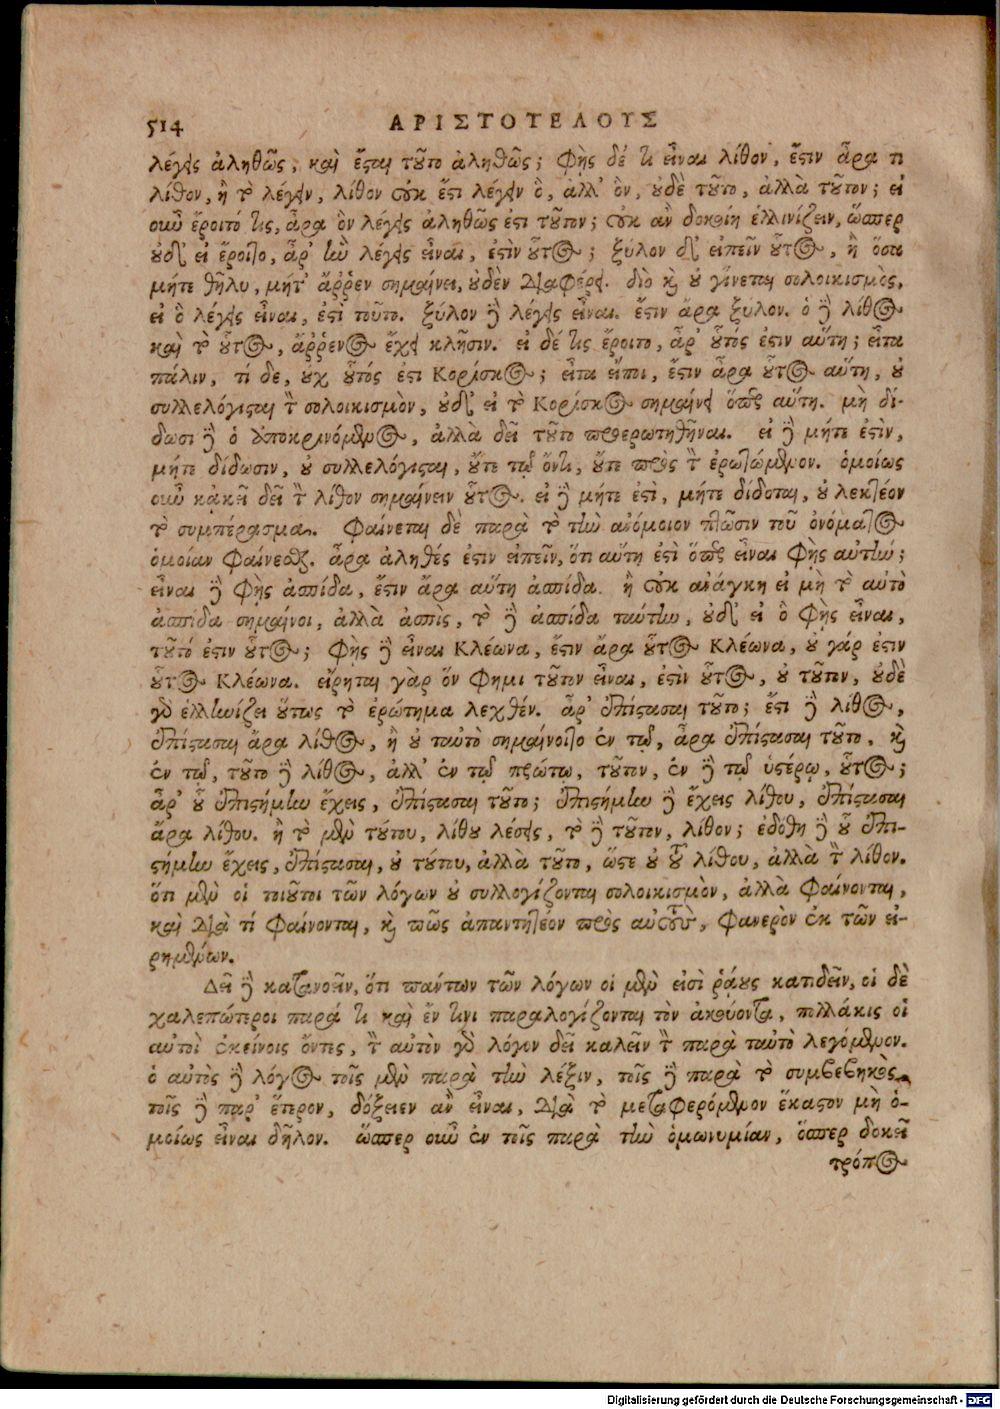 514
ΑΡΙΣΤΟΤΕΛΟΥΣ
λέγεις ἀληθῶς, καὶ ἔςαι τοῦτο ἀληθῶς; φῂς δέ τι εἶναι λίθον, ἔςιν ἆρα τι
λίθον, ἢ τὸ λέγειν, λίθον οὐκ ἔςι λέγειν ὃ, ἀλλ' ὃν, οὐδὲ τοῦτο, ἀλλὰ τοῦτον; εἰ
οὖν ἔροιτό τις, ἆρα ὃν λέγεις ἀληθῶς ἐςι τοῦτον; οὐκ ἂν δοκοίη ἑλληνίζειν, ὥσπερ
οὐδ' εἰ ἔροιτο, ἆρ' ἣν λέγεις εἶναι, ἐςὶν οὗτος; ξύλον δ' εἰπεῖν οὗτος, ἢ ὅσα
μήτε θῆλυ, μήτ' ἄῤῥεν σημαίνει, οὐδὲν διαφέρει. διὸ καὶ οὐ γίνεται σολοικισμὸς,
εἰ ὃ λέγεις εἶναι, ἐςὶ τοῦτο. ξύλον δὲ λέγεις εἶναι. ἔςιν ἄρα ξύλον. ὁ δὲ λίθος
καὶ τὸ οὗτος, ἄῤῥενος ἔχει κλῆσιν. εἰ δέ τις ἔροιτο, ἆρ' οὗτός ἐςιν αὕτη; εἶτα
πάλιν, τί δε, οὐχ οὗτός ἐςι Κορίσκος; εἶτα εἴποι, ἔςιν ἆρα οὗτος αὕτη, οὐ
συλλελόγιςαι τὸν σολοικισμὸν, οὐδ' εἰ τὸ Κορίσκος σημαίνει ὅπερ αὕτη. μὴ δί-
δωσι δὲ ὁ ἀποκρινόμενος, ἀλλὰ δεῖ τοῦτο προσερωτηθῆναι. εἰ δὲ μήτε ἐςὶν,
μήτε δίδωσιν, οὐ συλλελόγιςαι, οὔτε τῷ ὄντι, οὔτε πρὸς τὸν ἐρωτώμενον. ὁμοίως
οὖν κᾀκεῖ δεῖ τὸν λίθον σημαίνειν οὗτος. εἰ δὲ μήτε ἐςὶ, μήτε δίδοται, οὐ λεκτέον
τὸ συμπέρασμα. φαίνεται δὲ παρὰ τὸ τὴν ἀνόμοιον πτῶσιν τοῦ ὀνόματος
ὁμοίαν φαίνεσθαι. ἆρα ἀληθές ἐςιν εἰπεῖν, ὅτι αὕτη ἐςὶ ὅπερ εἶναι φῂς αὐτήν;
εἶναι δὲ φῂς ἀσπίδα, ἔςιν ἄρα αὕτη ἀσπίδα. ἢ οὐκ ἀνάγκη εἰ μὴ τὸ αὐτὸ
ἀσπίδα σημαίνοι, ἀλλὰ ἀσπὶς, τὸ δὲ ἀσπίδα ταύτην, οὐδ' εἰ ὃ φῂς εἶναι,
τοῦτό ἐςιν οὗτος; φῂς δὲ εἶναι Κλέωνα, ἔςιν ἄρα οὗτος Κλέωνα, οὐ γάρ ἐςιν
οὗτος Κλέωνα. εἴρηται γὰρ ὅν φημι τοῦτον εἶναι, ἐςὶν οὗτος, οὐ τοῦτον, οὐδὲ
γὸ ἑλληνίζει οὕτως τὸ ἐρώτημα λεχθέν. ἆρ' ἐπίςασαι τοῦτο; ἔςι δὲ λίθος,
ἐπίςασαι ἄρα λίθος, ἢ οὐ ταὐτὸ σημαίνοιτο ἐν τῷ, ἆρα ἐπίςασαι τοῦτο, καὶ
ἐν τῷ, τοῦτο δὲ λίθος, ἀλλ' ἐν τῷ πρώτῳ, τοῦτον, ἐν δὲ τῷ ὑςέρῳ, οὗτος;
ἆρ' οὗ ἐπιςήμην ἔχεις, ἐπίςασαι τοῦτο; ἐπιςήμην δὲ ἔχεις λίθου, ἐπίςασαι
ἄρα λίθου. ἢ τὸ μὲν τούτου, λίθου λέγεις, τὸ δὲ τοῦτον, λίθον; ἐδόθη δὲ οὗ ἐπι-
ςήμην ἔχεις, ἐπίςασαι, οὐ τούτου, ἀλλὰ τοῦτο, ὥςε οὐ τοῦ λίθου, ἀλλὰ τὸν λίθον.
ὅτι μὲν οἱ τοιοῦτοι τῶν λόγων οὐ συλλογίζονται σολοικισμὸν, ἀλλὰ φαίνονται,
καὶ διὰ τί φαίνονται, καὶ πῶς ἀπαντητέον πρὸς αὐτοὺς, φανερὸν ἐκ τῶν εἰ-
ρημένων.
Δεῖ δὲ κατανοεῖν, ὅτι πάντων τῶν λόγων οἱ μὲν εἰσὶ ῥᾴους κατιδεῖν, οἱ δὲ
χαλεπώτεροι παρά τι καὶ ἔν τινι παραλογίζονται τὸν ἀκούοντα, πολλάκις οἱ
αὐτοὶ ἐκείνοις ὄντες, τὸν αὐτὸν γὸ λόγον δεῖ καλεῖν τὸν παρὰ ταὐτὸ λεγόμενον.
ὁ αὐτὸς δὲ λόγος τοῖς μὲν παρὰ τὴν λέξιν, τοῖς δὲ παρὰ τὸ συμβεβηκὸς,
τοῖς δὲ παρ' ἕτερον, δόξειεν ἂν εἶναι, διὰ τὸ μεταφερόμενον ἕκαςον μὴ ὁ-
μοίως εἶναι δῆλον. ὥσπερ οὖν ἐν τοῖς παρὰ τὴν ὁμωνυμίαν, ὅσπερ δοκεῖ
τρόπος
Digitalisierung gefördert durch die Deutsche Forschungsgemeinschaft - DFG